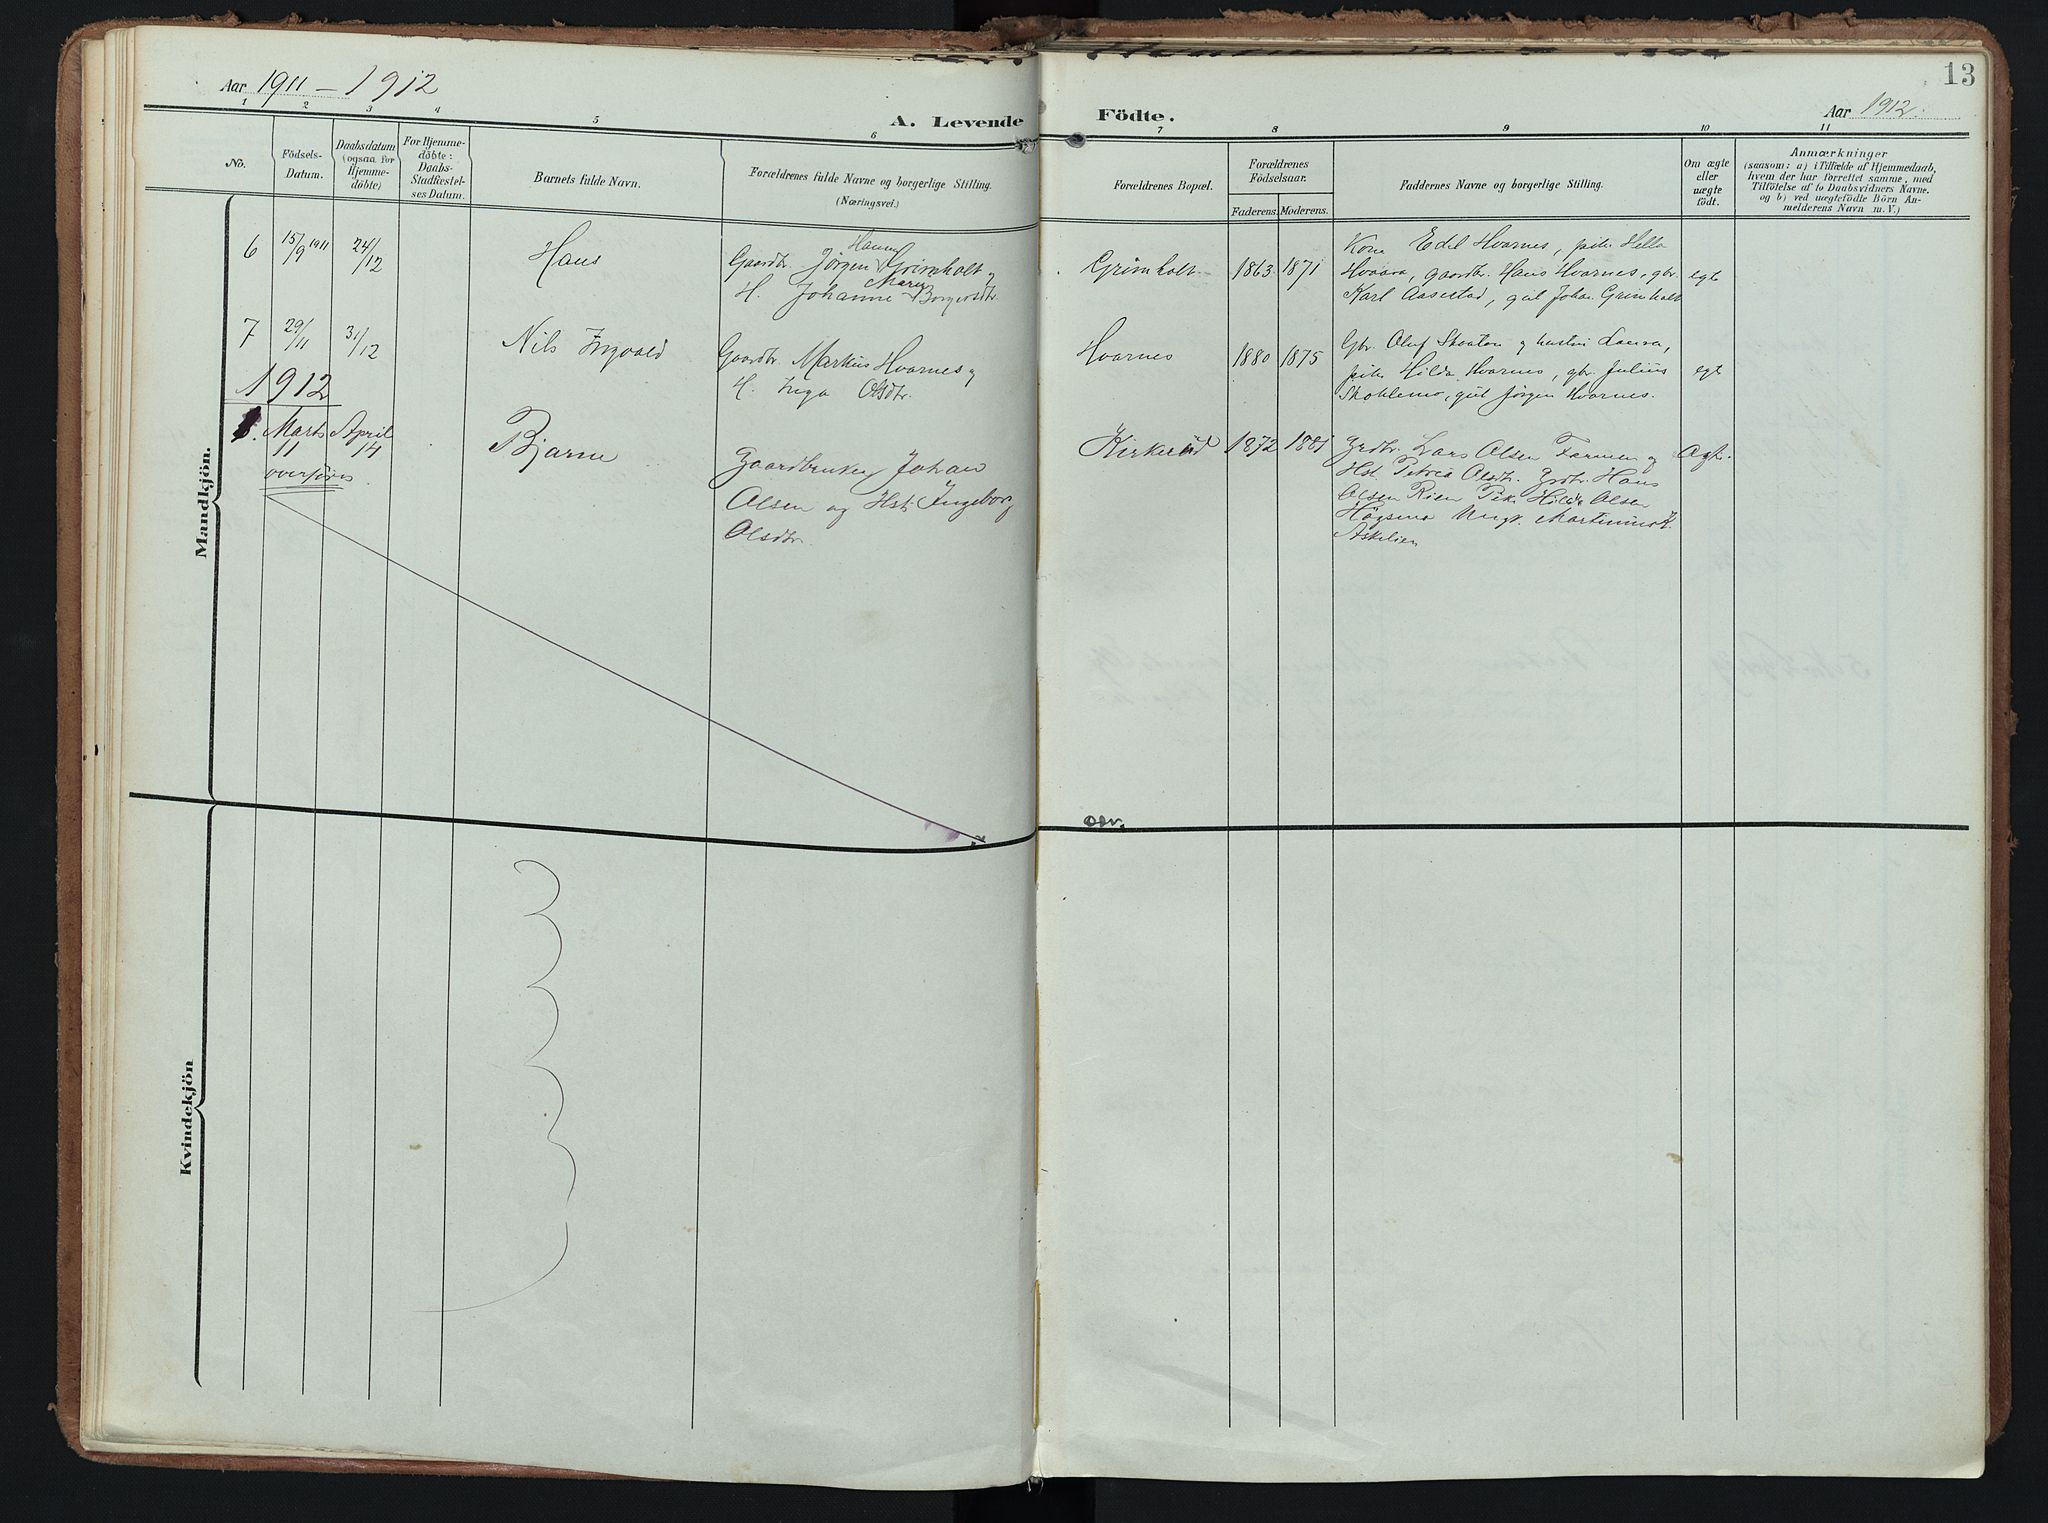 Aar 1911 – 1912
A. Levende
Födte.
Aar 1912.
13
1 2 3 4 5 6 7 8 9 10 11
No.
Födsels-
Datum.
Daabsdatum
(ogsaa for
Hjemme-
döbte)
For Hjemme-
döbte:
Daabs-
Stadfæstel-
ses Datum.
Barnets fulde Navn.
Forældrenes fulde Navne og borgerlige Stilling.
(Næringsvei.)
Forældrenes Bopæl.
Forældrenes
Födselsaar.
Faderens. Moderens.
Faddernes Navne og borgerlige Stilling.
Om ægte
eller
uægte
födt.
Anmærkninger
(saasom: a) i Tilfælde af Hjemmedaab,
hvem der har forrettet samme, med
Tilföielse af to Daabsvidners Navne.
og b) ved uægtefödte Börn An-
melderens Navn m. V.)
Mandkjön.
6 15/9 1911 24/12 Hans
Gaardbr. Jørgen Hansen Grimholt og
H. Johanne Marie Borgersdtr.
Grimholt 1863 1871
Kone Edel Hvarnes, pike Hella
Hvaara, gaardbr. Hans Hvarnes, gbr.
Karl Aasestad, gut Johan Grimholt
egte
7 29/11 31/12 Nils Ingvald
Gaardbr. Markus Hvarnes og
H. Inga Olsdtr.
Hvarnes 1880 1875
Gbr. Oluf Skaatan og hustru Laura,
pike Hilda Hvarnes, gbr. Julius
Skoklemo, gut Jørgen Hvarnes.
egt
1912
Marts 11 April 14 Bjarne
Gaardbruker Johan
Olsen og Hst. Ingeborg
Olsdtr.
Kirkerud 1872 1881
Grdbr. Lars Olsen Farmen og
Hst. Petrea Olsdtr. Grdbr. Hans
Olsen Rien Pike Hilda Olsen
Högsmo Ungk. Martinius K.
Askelien
Ægte.
overføres
ovr.
Kvindekjön